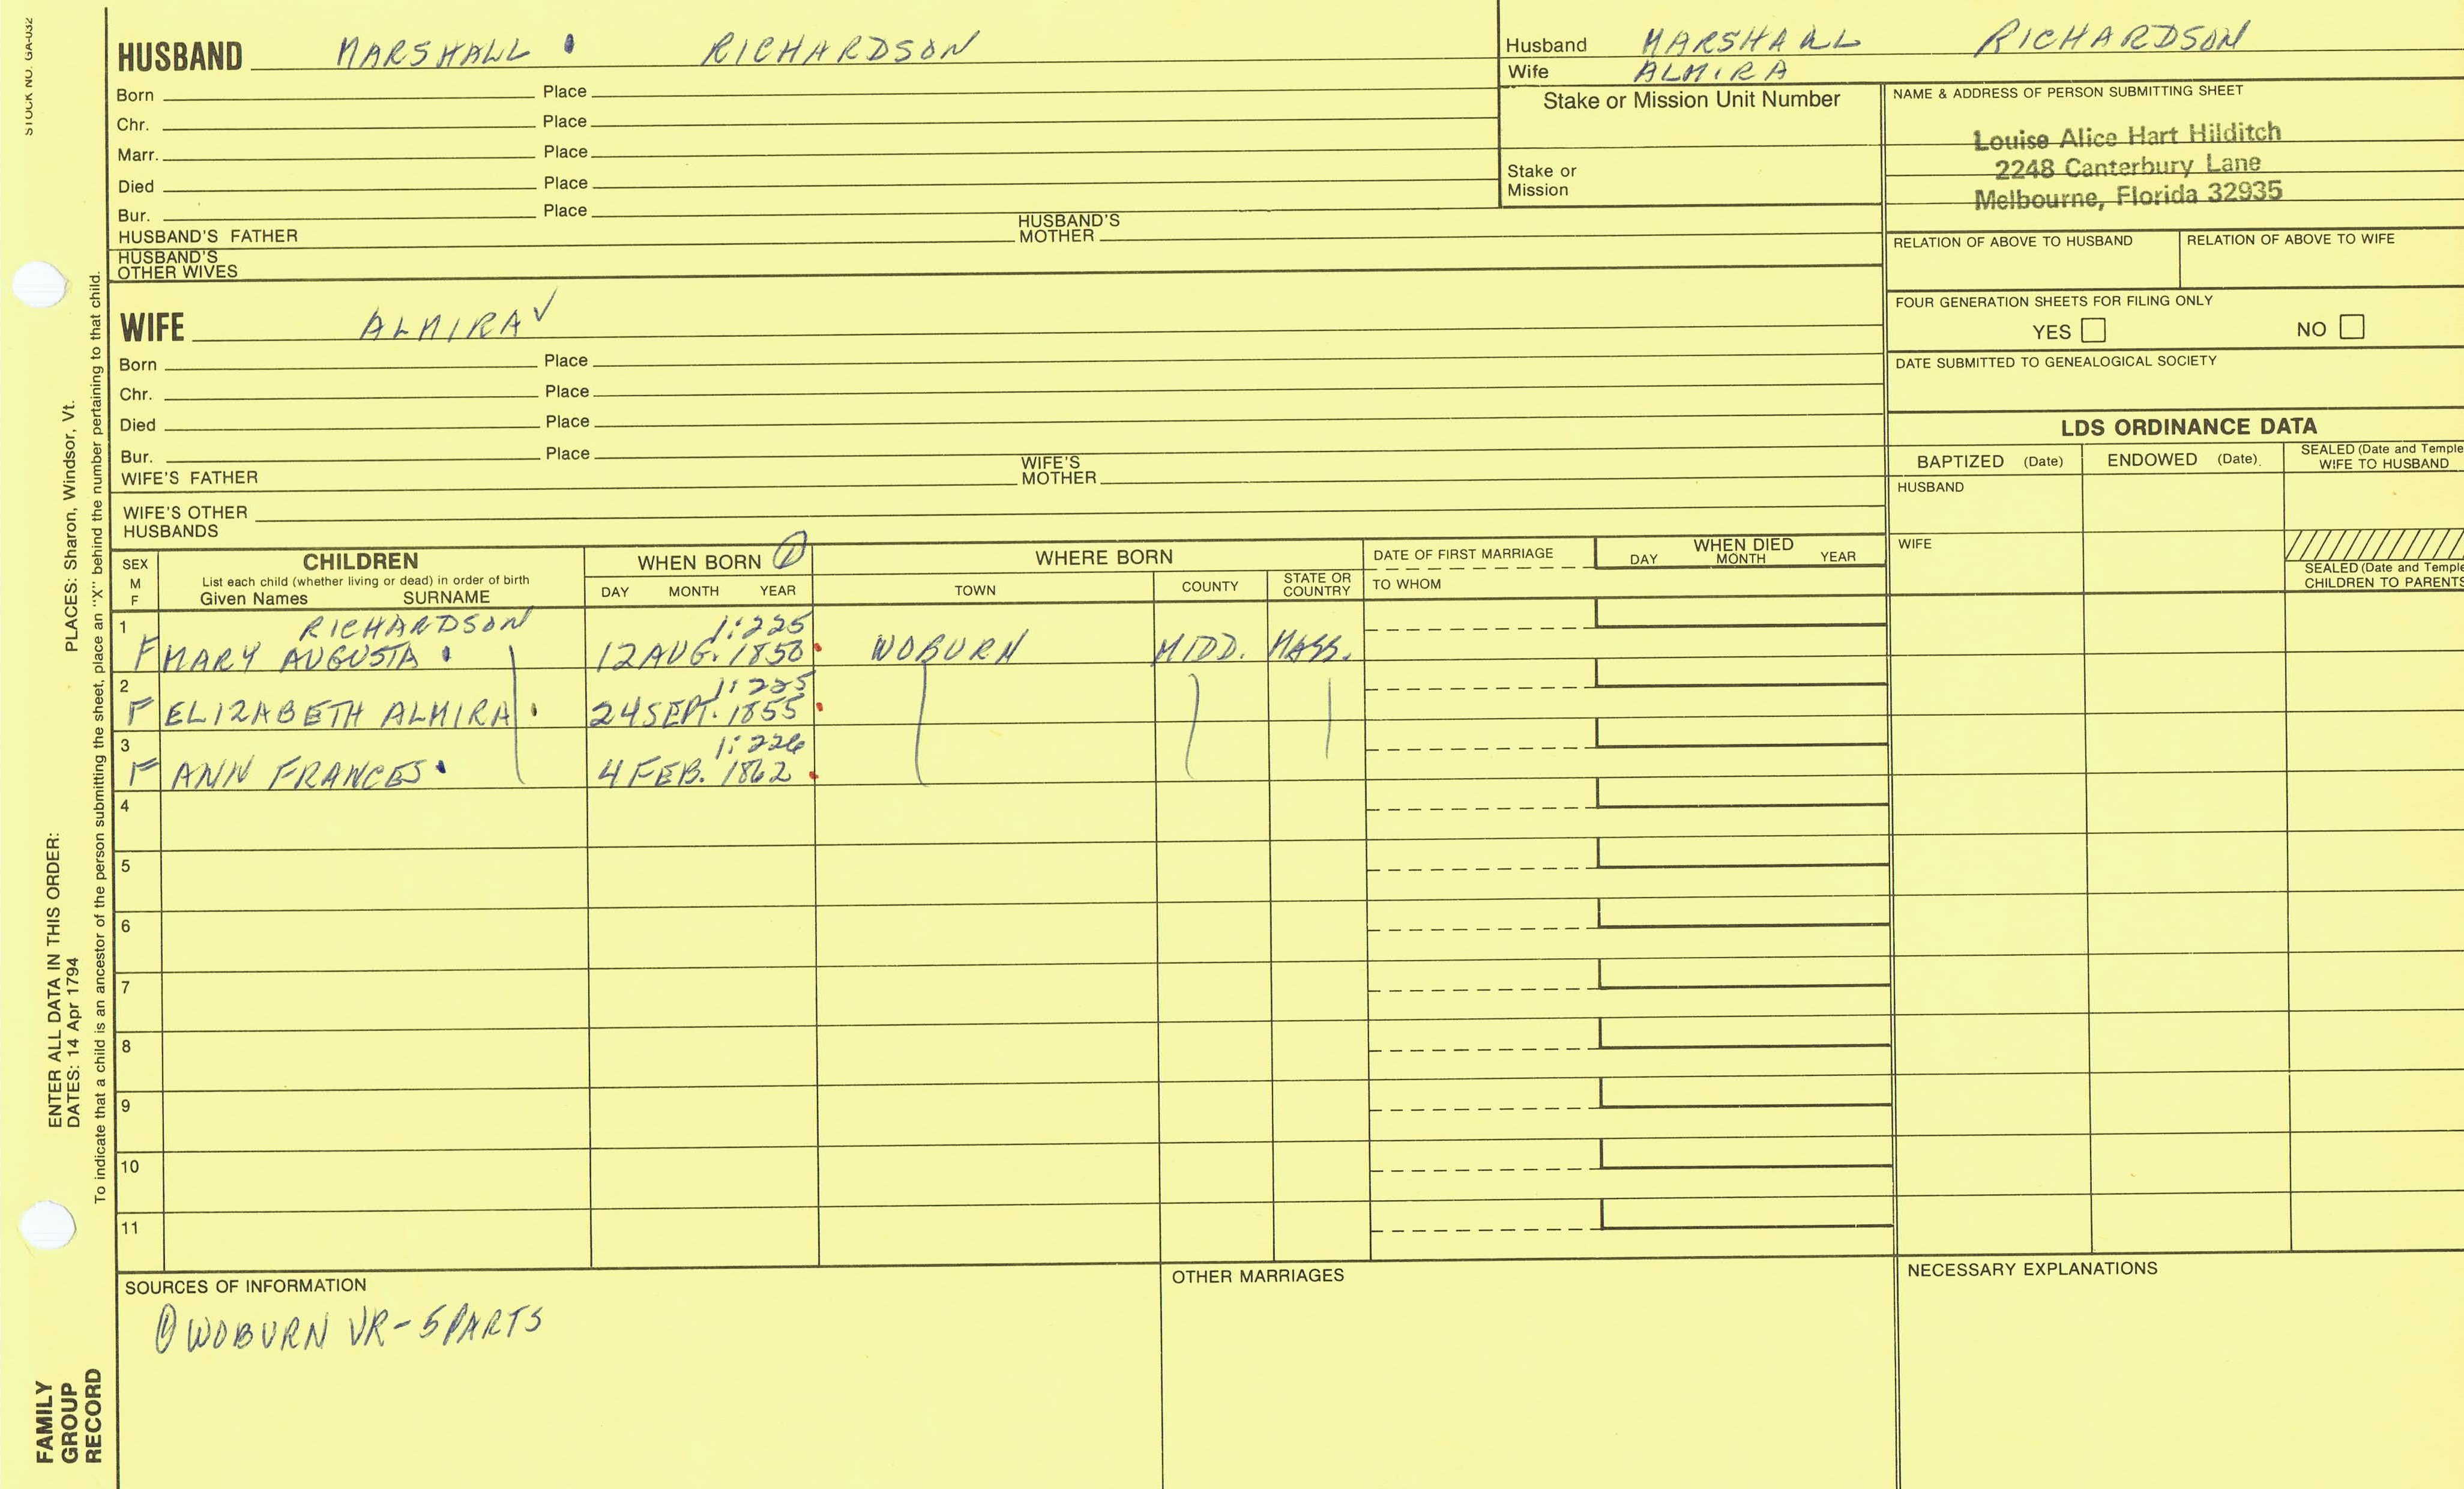 STOCK NO. GA-032
HUSBAND MARSHALL RICHARDSON
Born Place
Chr. Place
Marr. Place
Died Place
Bur. Place
HUSBAND'S FATHER HUSBAND'S MOTHER
HUSBAND'S OTHER WIVES
WIFE ALMIRA ✓
Born Place
Chr. Place
Died Place
Bur. Place
WIFE'S FATHER WIFE'S MOTHER
WIFE'S OTHER HUSBANDS
Husband MARSHALL RICHARDSON
Wife ALMIRA
Stake or Mission Unit Number
Stake or Mission
NAME & ADDRESS OF PERSON SUBMITTING SHEET
Louise Alice Hart Hilditch
2248 Canterbury Lane
Melbourne, Florida 32935
RELATION OF ABOVE TO HUSBAND RELATION OF ABOVE TO WIFE
FOUR GENERATION SHEETS FOR FILING ONLY
YES NO
DATE SUBMITTED TO GENEALOGICAL SOCIETY
LDS ORDINANCE DATA
BAPTIZED (Date) ENDOWED (Date) SEALED (Date and Temple
WIFE TO HUSBAND
HUSBAND
WIFE
SEALED (Date and Temple
CHILDREN TO PARENTS
SEX CHILDREN WHEN BORN ① WHERE BORN DATE OF FIRST MARRIAGE WHEN DIED
M List each child (whether living or dead) in order of birth DAY MONTH YEAR TOWN COUNTY STATE OR COUNTRY TO WHOM DAY MONTH YEAR
F Given Names SURNAME
1 RICHARDSON 1:225
F MARY AUGUSTA 12 AUG. 1850 WOBURN MIDD. MASS.
2 1:225
F ELIZABETH ALMIRA 24 SEPT. 1855
3 1:226
F ANN FRANCES 4 FEB. 1862
4
5
6
7
8
9
10
11
SOURCES OF INFORMATION
① WOBURN VR - 5 PARTS
OTHER MARRIAGES
NECESSARY EXPLANATIONS
PLACES: Sharon, Windsor, Vt.
ENTER ALL DATA IN THIS ORDER:
DATES: 14 Apr 1794
To indicate that a child is an ancestor of the person submitting the sheet, place an "X" behind the number pertaining to that child.
FAMILY
GROUP
RECORD